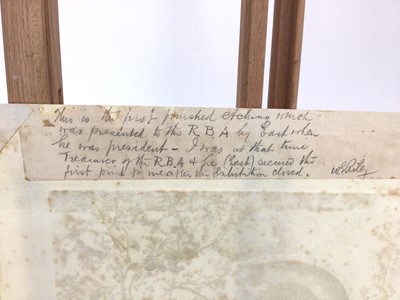 This is the first finished Etching which
was presented to the R.B.A by East when
he was president - I was at that time
Treasurer of the R.B.A & he (East) secured this
first print for me after the exhibition closed.